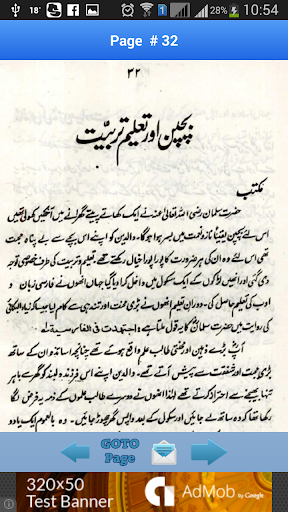 18°
28%
10:54
Page # 32
۳۲
بچپن اور تعلیم تربیت
مکتب
حضرت سلمان رضی اللہ تعالیٰ عنہ نے ایک کھاتے پیتے گھرانے میں آنکھیں کھولی تھیں
اس لئے بچپن یقیناً ناز و نعمت میں بسر ہوا ہوگا۔ والدین کو اپنے اس بچے سے بے پناہ محبت
تھی اس لئے وہ ان کی ہر ضرورت کا پورا پورا خیال رکھتے تھے۔ تعلیم و تربیت کی طرف خصوصی توجہ
دی گئی اور انھیں لڑکوں کے ایک سکول میں داخل کرا دیا گیا۔ جہاں انھوں نے فارسی زبان و
ادب کی تعلیم حاصل کی۔ دوران تعلیم انھوں نے بڑی محنت اور تندہی سے کام لیا۔
کی روایت میں حضرت سلمانؓ کا یہ قول ملتا ہے واجتهدت فی الفارسية
آپؓ بڑے ذہین اور محنتی طالب علم واقع ہوئے تھے چنانچہ اساتذہ ان کے ساتھ
بڑی محبت اور شفقت سے پیش آتے تھے۔ والدین اپنے اس فرزند دلبند کو گھر سے باہر
تنہا بھیجنے سے احتراز کرتے تھے لہٰذا انھوں نے مدرسے کے دو طالب علموں کے ذمے یہ فرض لگا
رکھا تھا کہ وہ ساتھ لے جائیں اور سکول کے بعد واپس گھر چھوڑ جائیں۔ وہ بالعموم ایک یا دو
GOTO
Page
320×50
Test Banner
AdMob by Google